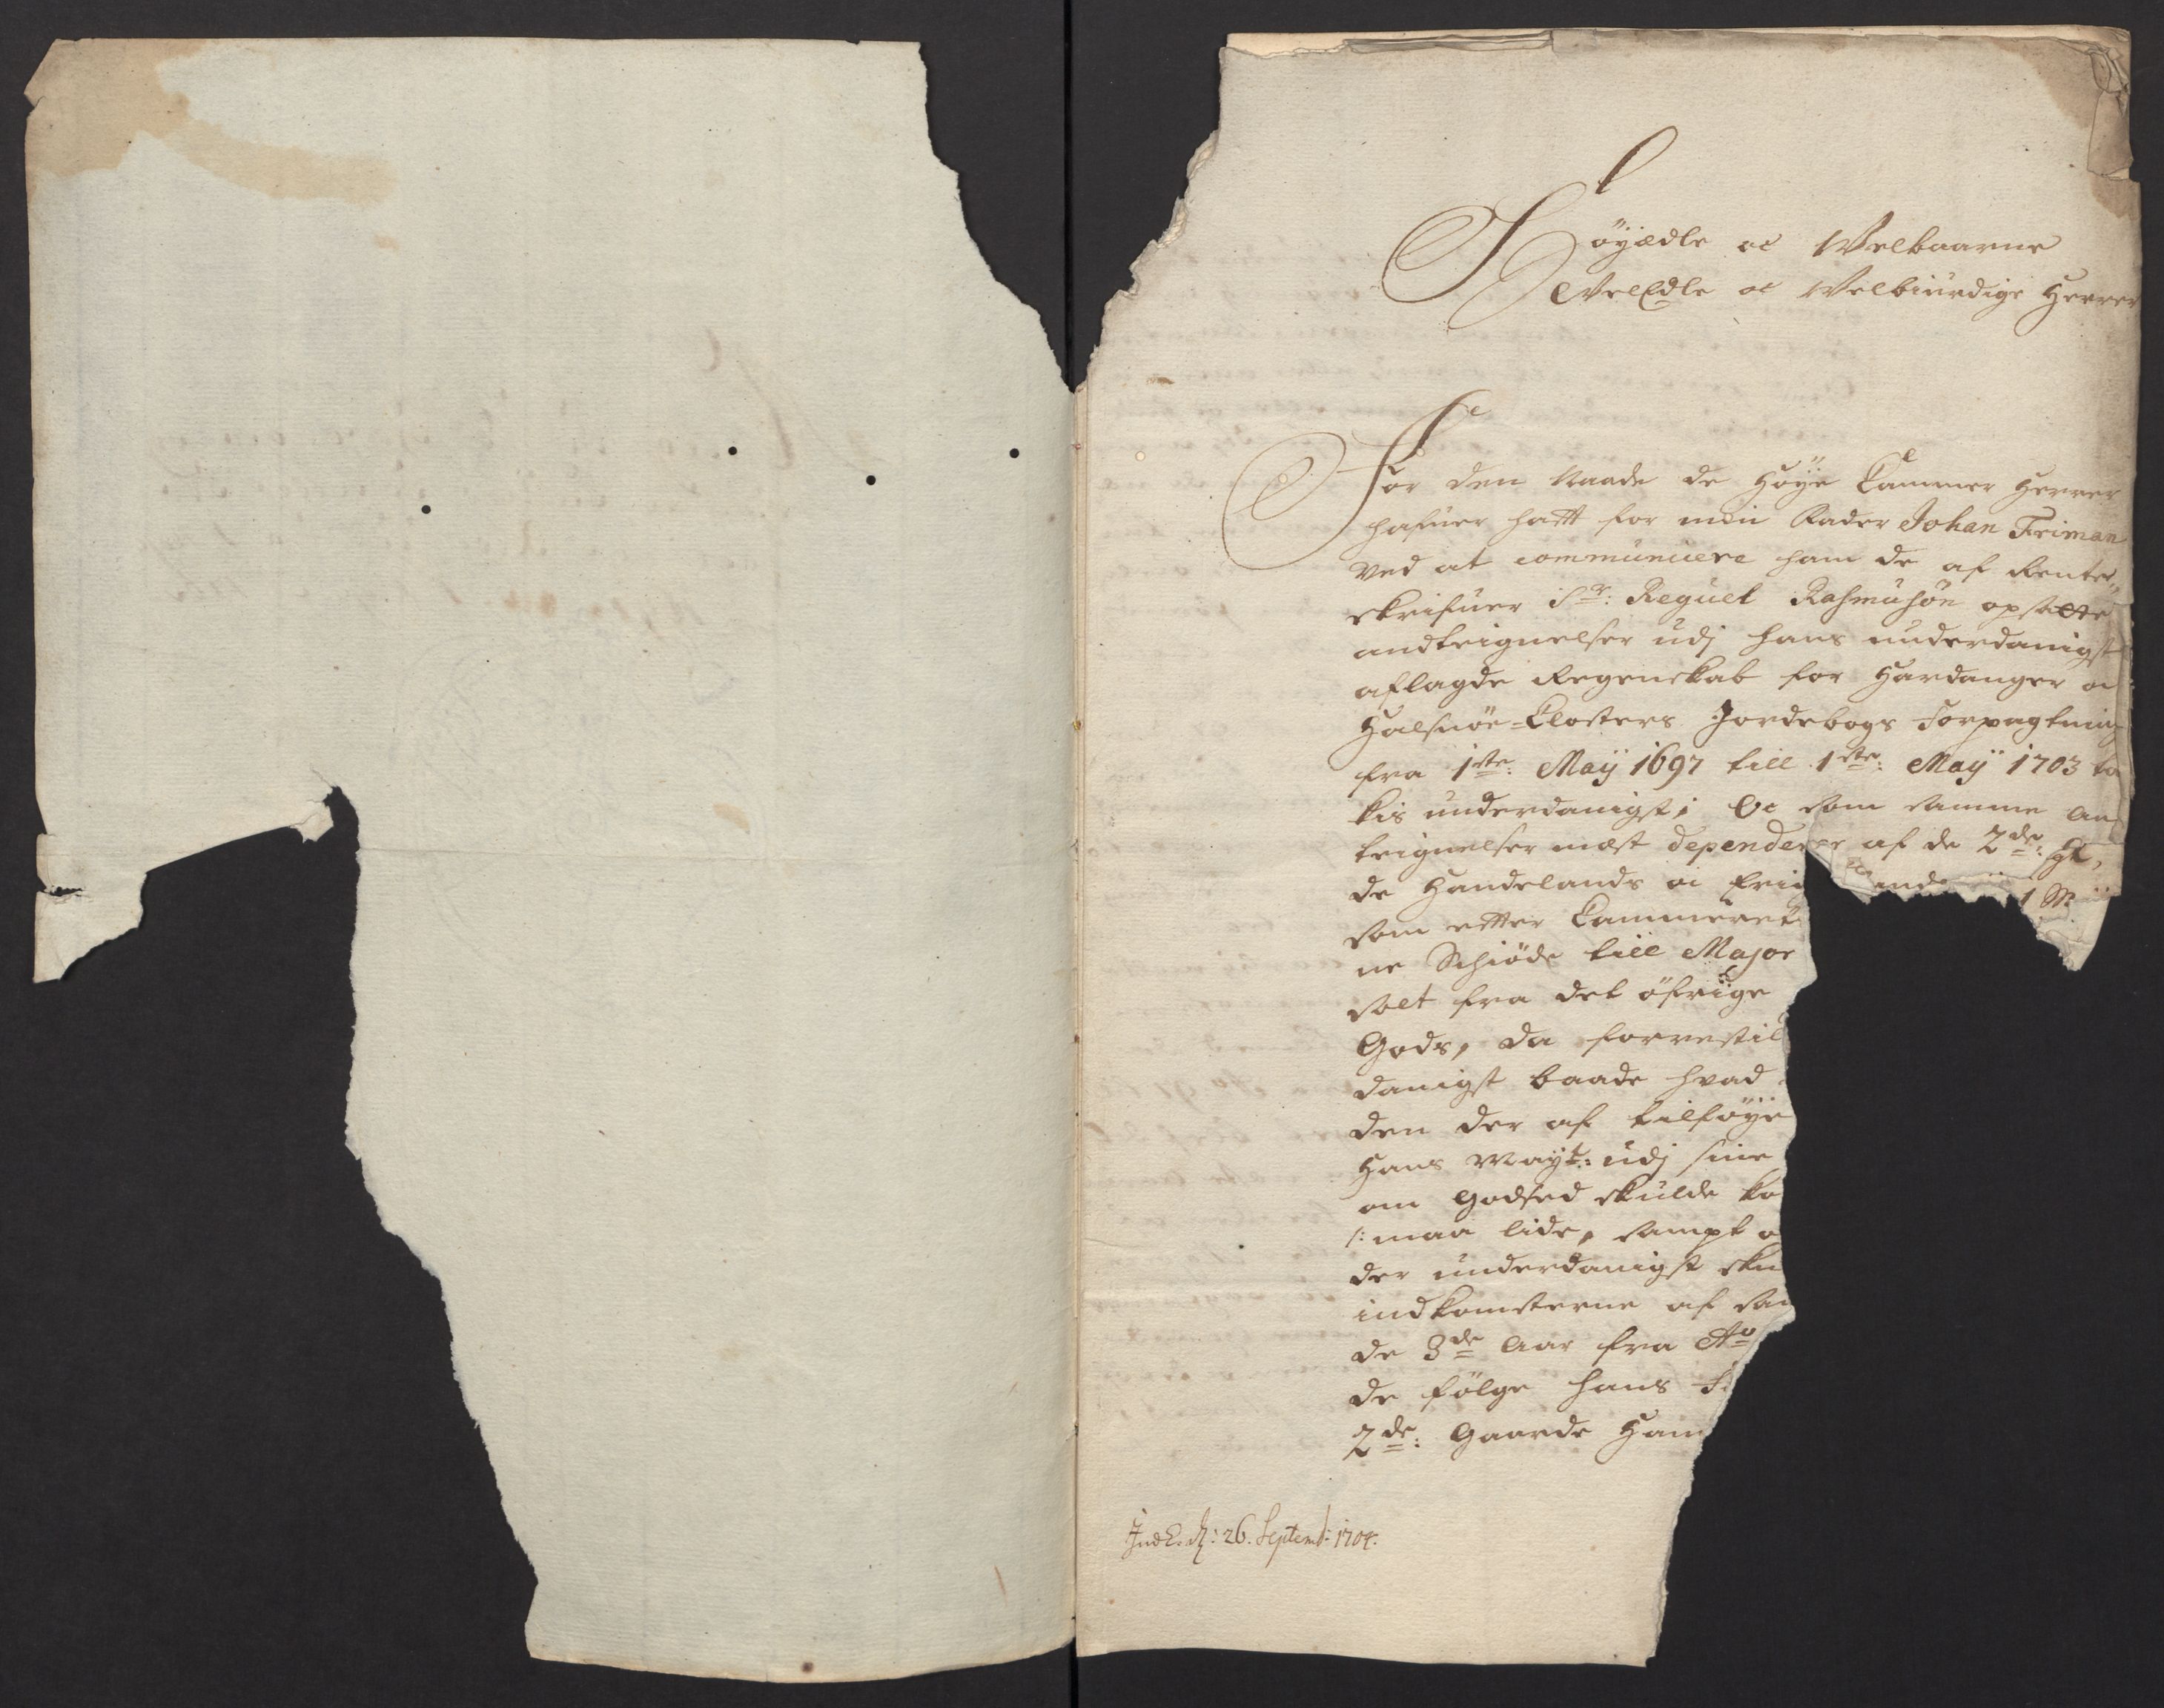 Höÿædle oc Welbaarne
WelEdle oc Welbiurdige Herrer
For den Naade de Höÿe Cammer Herrer
hafuer hatt for min Fader Johan Friman
ved at communicere ham de af Rente-
skrifuer Sr: Reguel Rasmusøn opsatte
andteignelser udj hans underdanigst
aflagde Regenskab for Hardanger oc
Halsnöe-Closters Jordebogs Forpagtning
fra 1ste: Maÿ 1697 till 1ste: Maÿ 1703 ta
kis underdanigst; Oc som samme An
teignelser mest dependerer af de 2de:
de Handelands oc 1
som efter Cammeret
ne Schiöde till Major
solt fra det öfrige
Gods, da forrestil
danigst baade hvad
den der af tilföÿe
Hans Maÿt: udj sine
om Godsed skulde ko
/: maa lide, sampt o
der underdanigst sku
indkomsterne af sam
de 3de Aar fra Ao
de fölge hans F
2de: Gaarde Han
Indl. d: 26. Septemb: 1704.